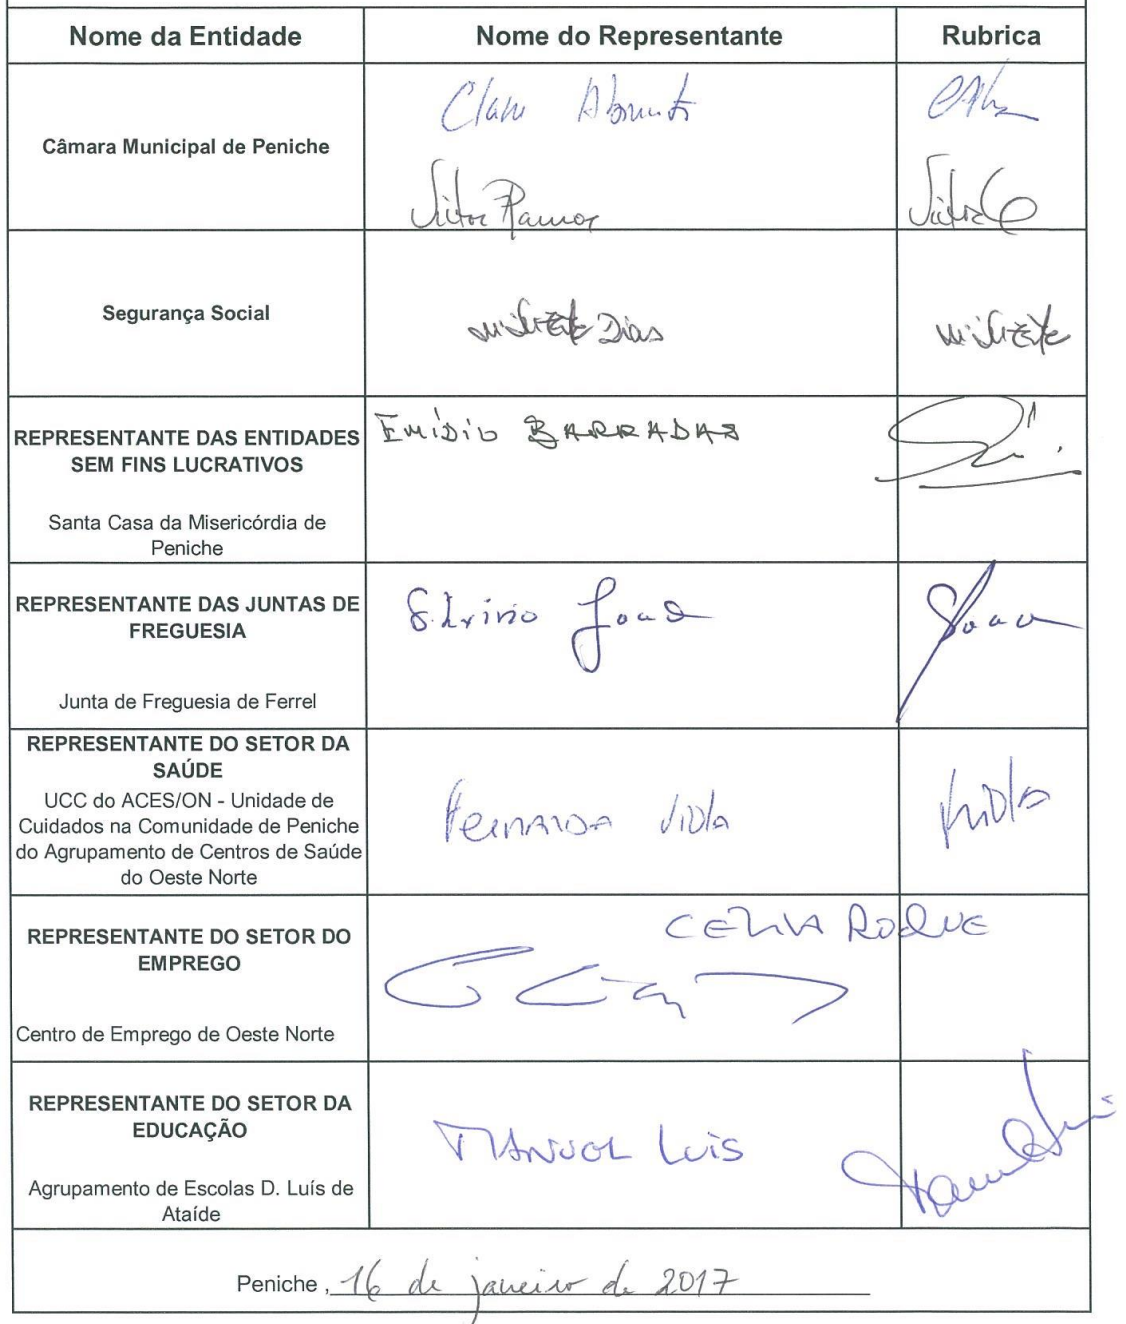 Nome da Entidade Nome do Representante Rubrica
Câmara Municipal de Peniche
Clara Abrunhosa
Victor Ramos
Segurança Social
Dias
REPRESENTANTE DAS ENTIDADES
SEM FINS LUCRATIVOS
Santa Casa da Misericórdia de
Peniche
EMÍDIO BARRADAS
REPRESENTANTE DAS JUNTAS DE
FREGUESIA
Junta de Freguesia de Ferrel
Silvino João
João
REPRESENTANTE DO SETOR DA
SAÚDE
UCC do ACES/ON - Unidade de
Cuidados na Comunidade de Peniche
do Agrupamento de Centros de Saúde
do Oeste Norte
FERNANDA Viola
REPRESENTANTE DO SETOR DO
EMPREGO
Centro de Emprego de Oeste Norte
CÉLIA ROQUE
REPRESENTANTE DO SETOR DA
EDUCAÇÃO
Agrupamento de Escolas D. Luís de
Ataíde
MANUEL LUIS
Peniche , 16 de janeiro de 2017